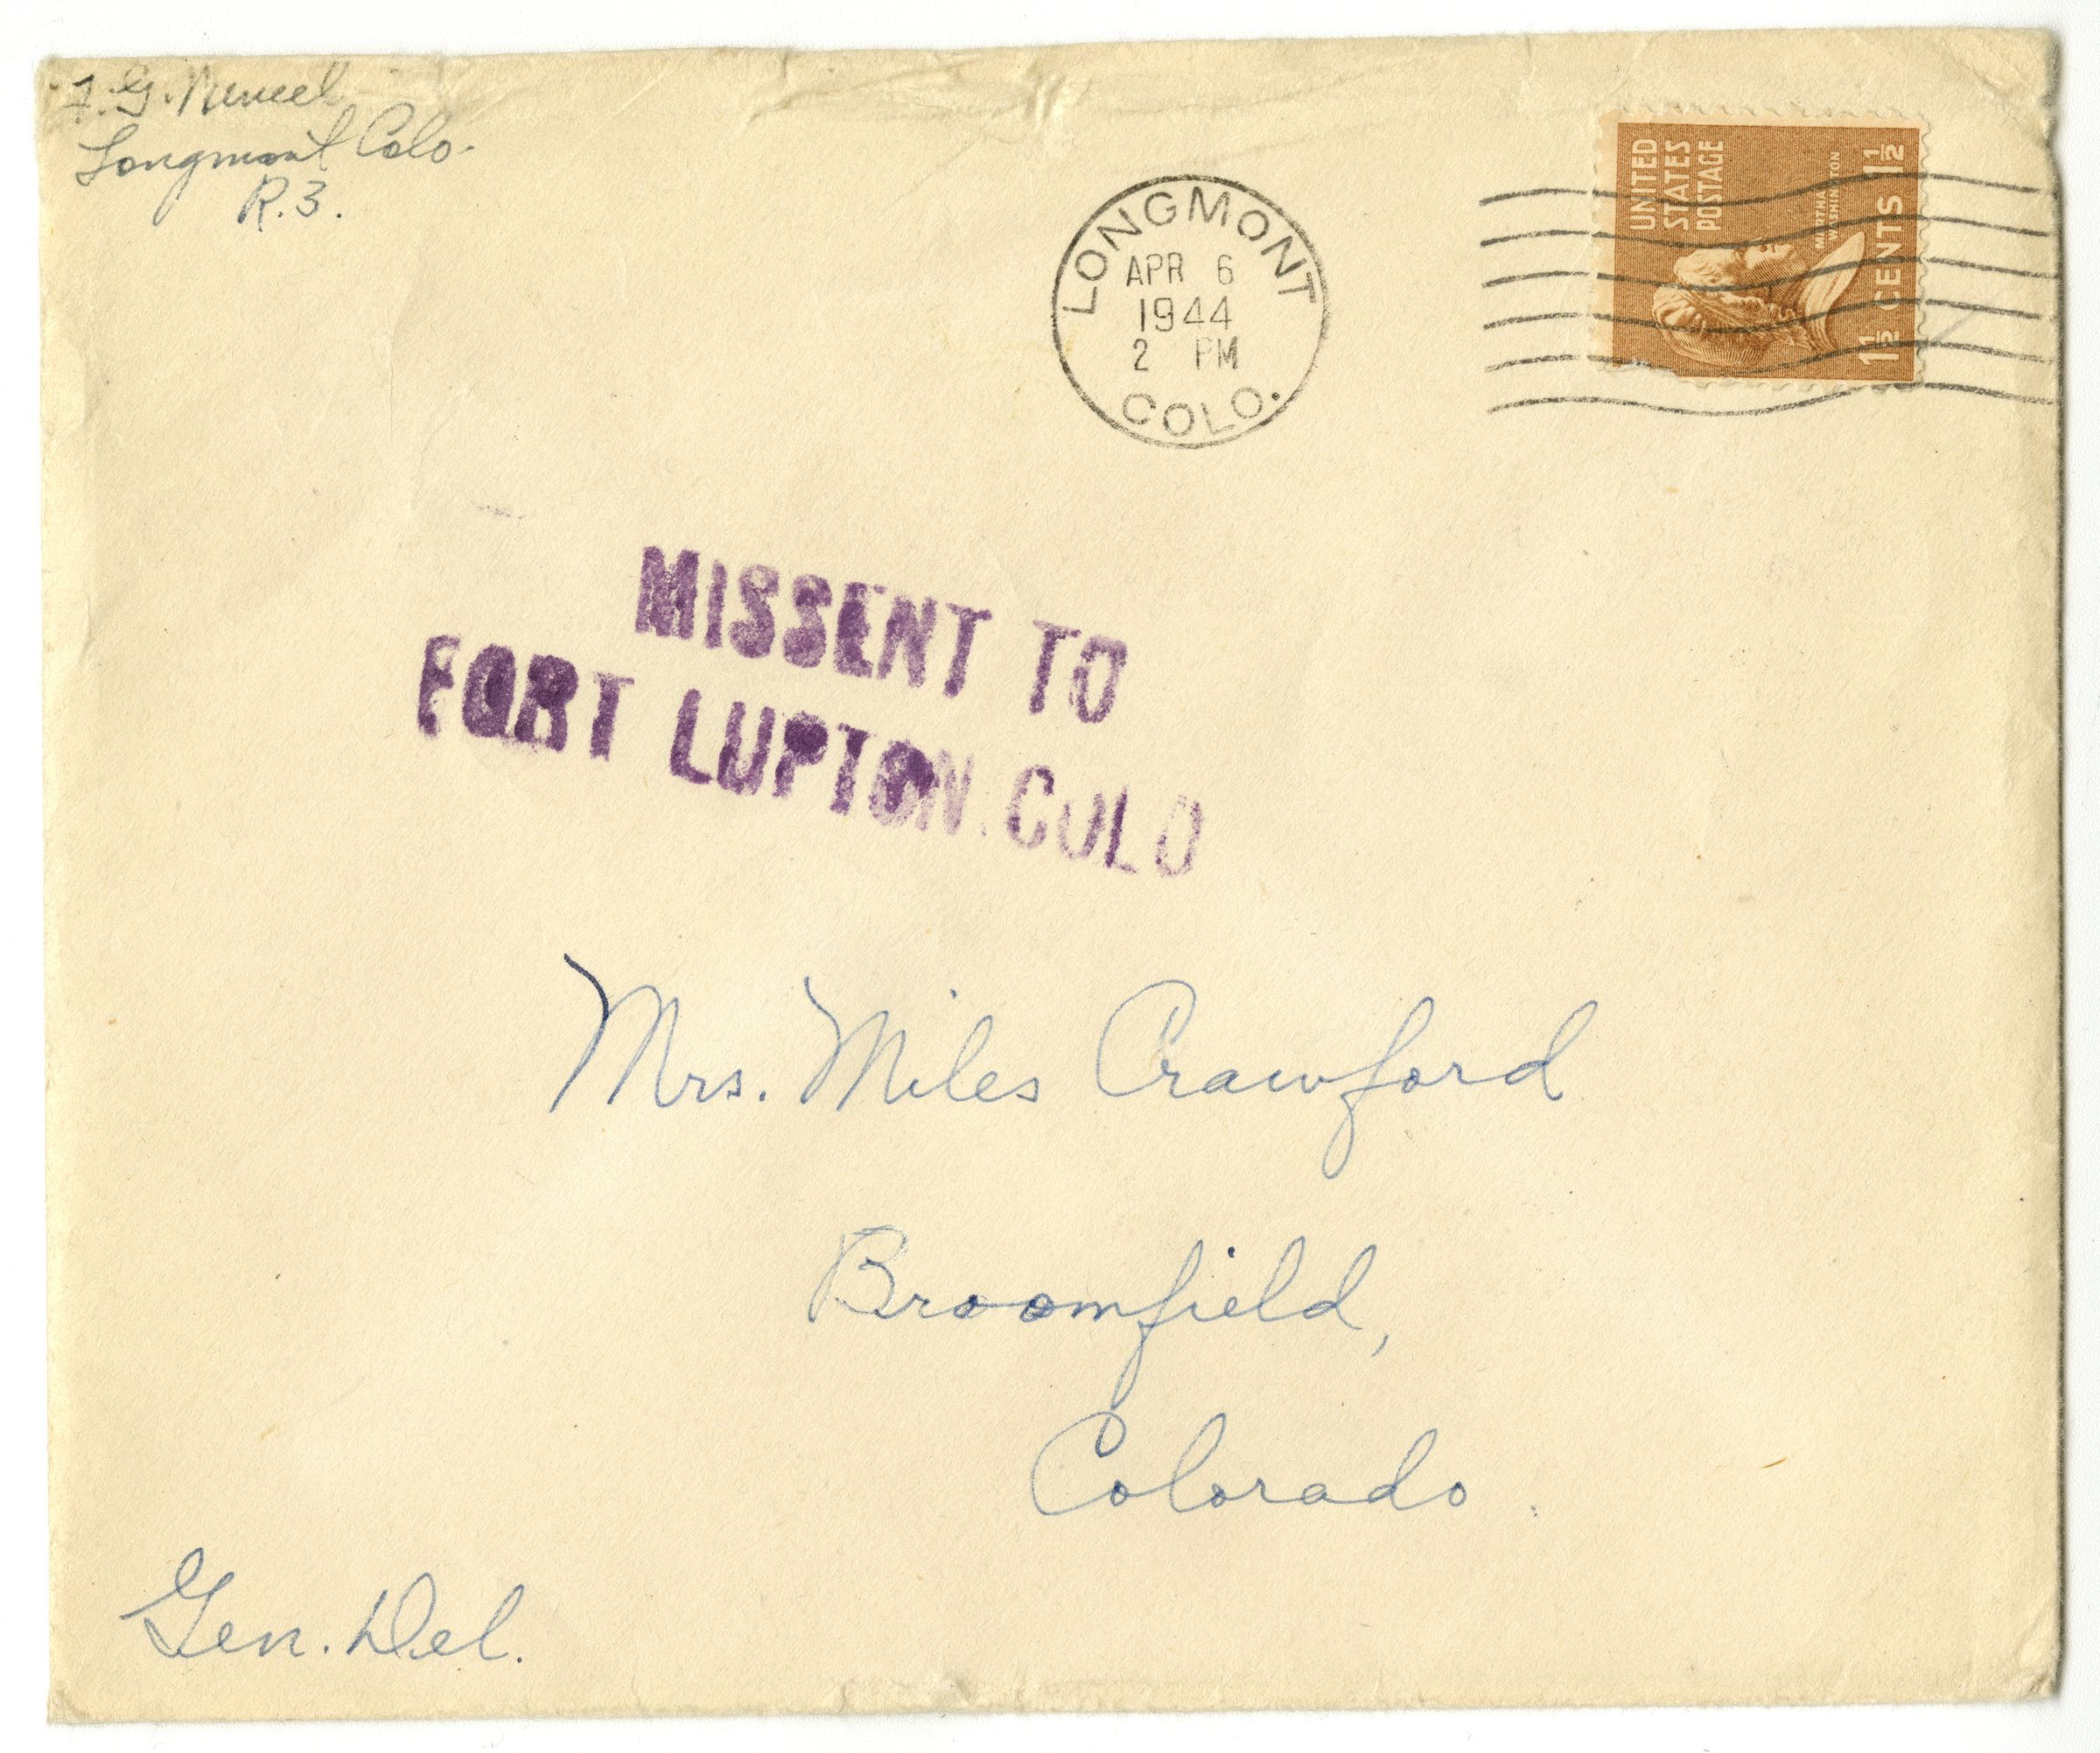 G.
Longmont Colo.
R.3.
LONGMONT
APR 6
1944
2 PM
COLO.
UNITED
STATES
POSTAGE
MARTHA
WASHINGTON
1½ CENTS 1½
MISSENT TO
FORT LUPTON. COLO
Mrs. Miles Crawford
Broomfield,
Colorado.
Gen. Del.